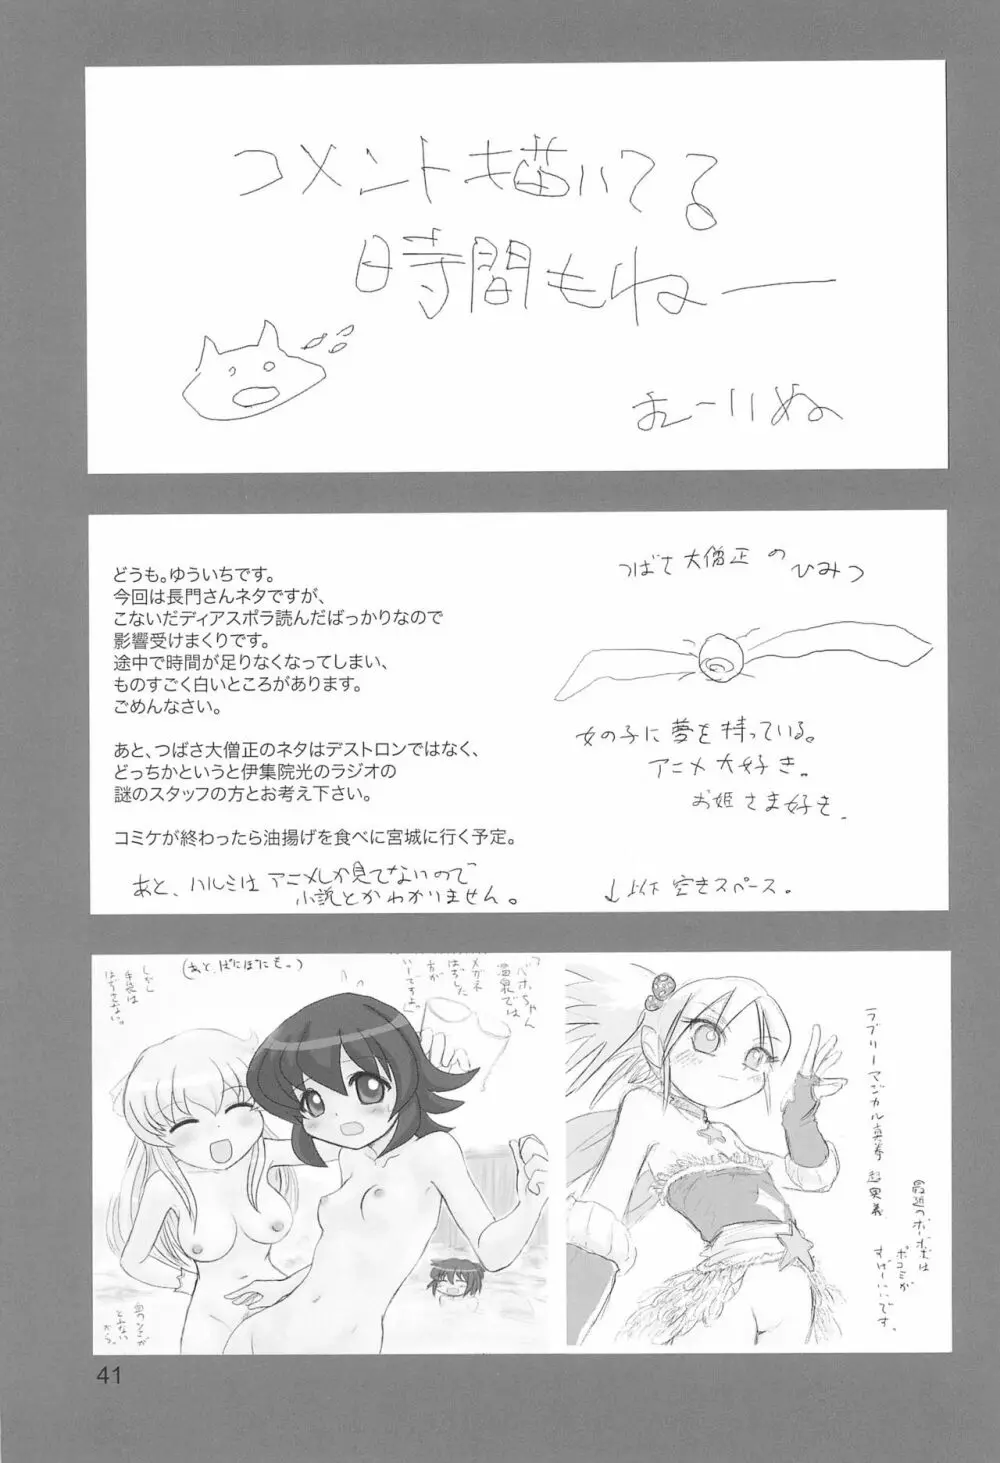 コメントも描いてる
時間もねー
むーいぬ
どうも。ゆういちです。
今回は長門さんネタですが、
こないだディアスポラ読んだばっかりなので
影響受けまくりです。
途中で時間が足りなくなってしまい、
ものすごく白いところがあります。
ごめんなさい。
あと、つばさ大僧正のネタはデストロンではなく、
どっちかというと伊集院光のラジオの
謎のスタッフの方とお考え下さい。
コミケが終わったら油揚げを食べに宮城に行く予定。
あと、ハルヒは アニメしか見てないので
小説とかわかりません。
つばさ大僧正の
ひみつ
女の子に夢を持っている。
アニメ大好き。
お姫さま好き。
↓以下 空きスペース。
(あと、ぱにぽにも。)
「ベホちゃん
温泉では
メガネ
はずした
方が
いーですよ」
しかし
手袋は
はずさない。
ラブリーマジカル真拳 超奥義
最近のボーボボは
ポコミが
すげーいいです。
41